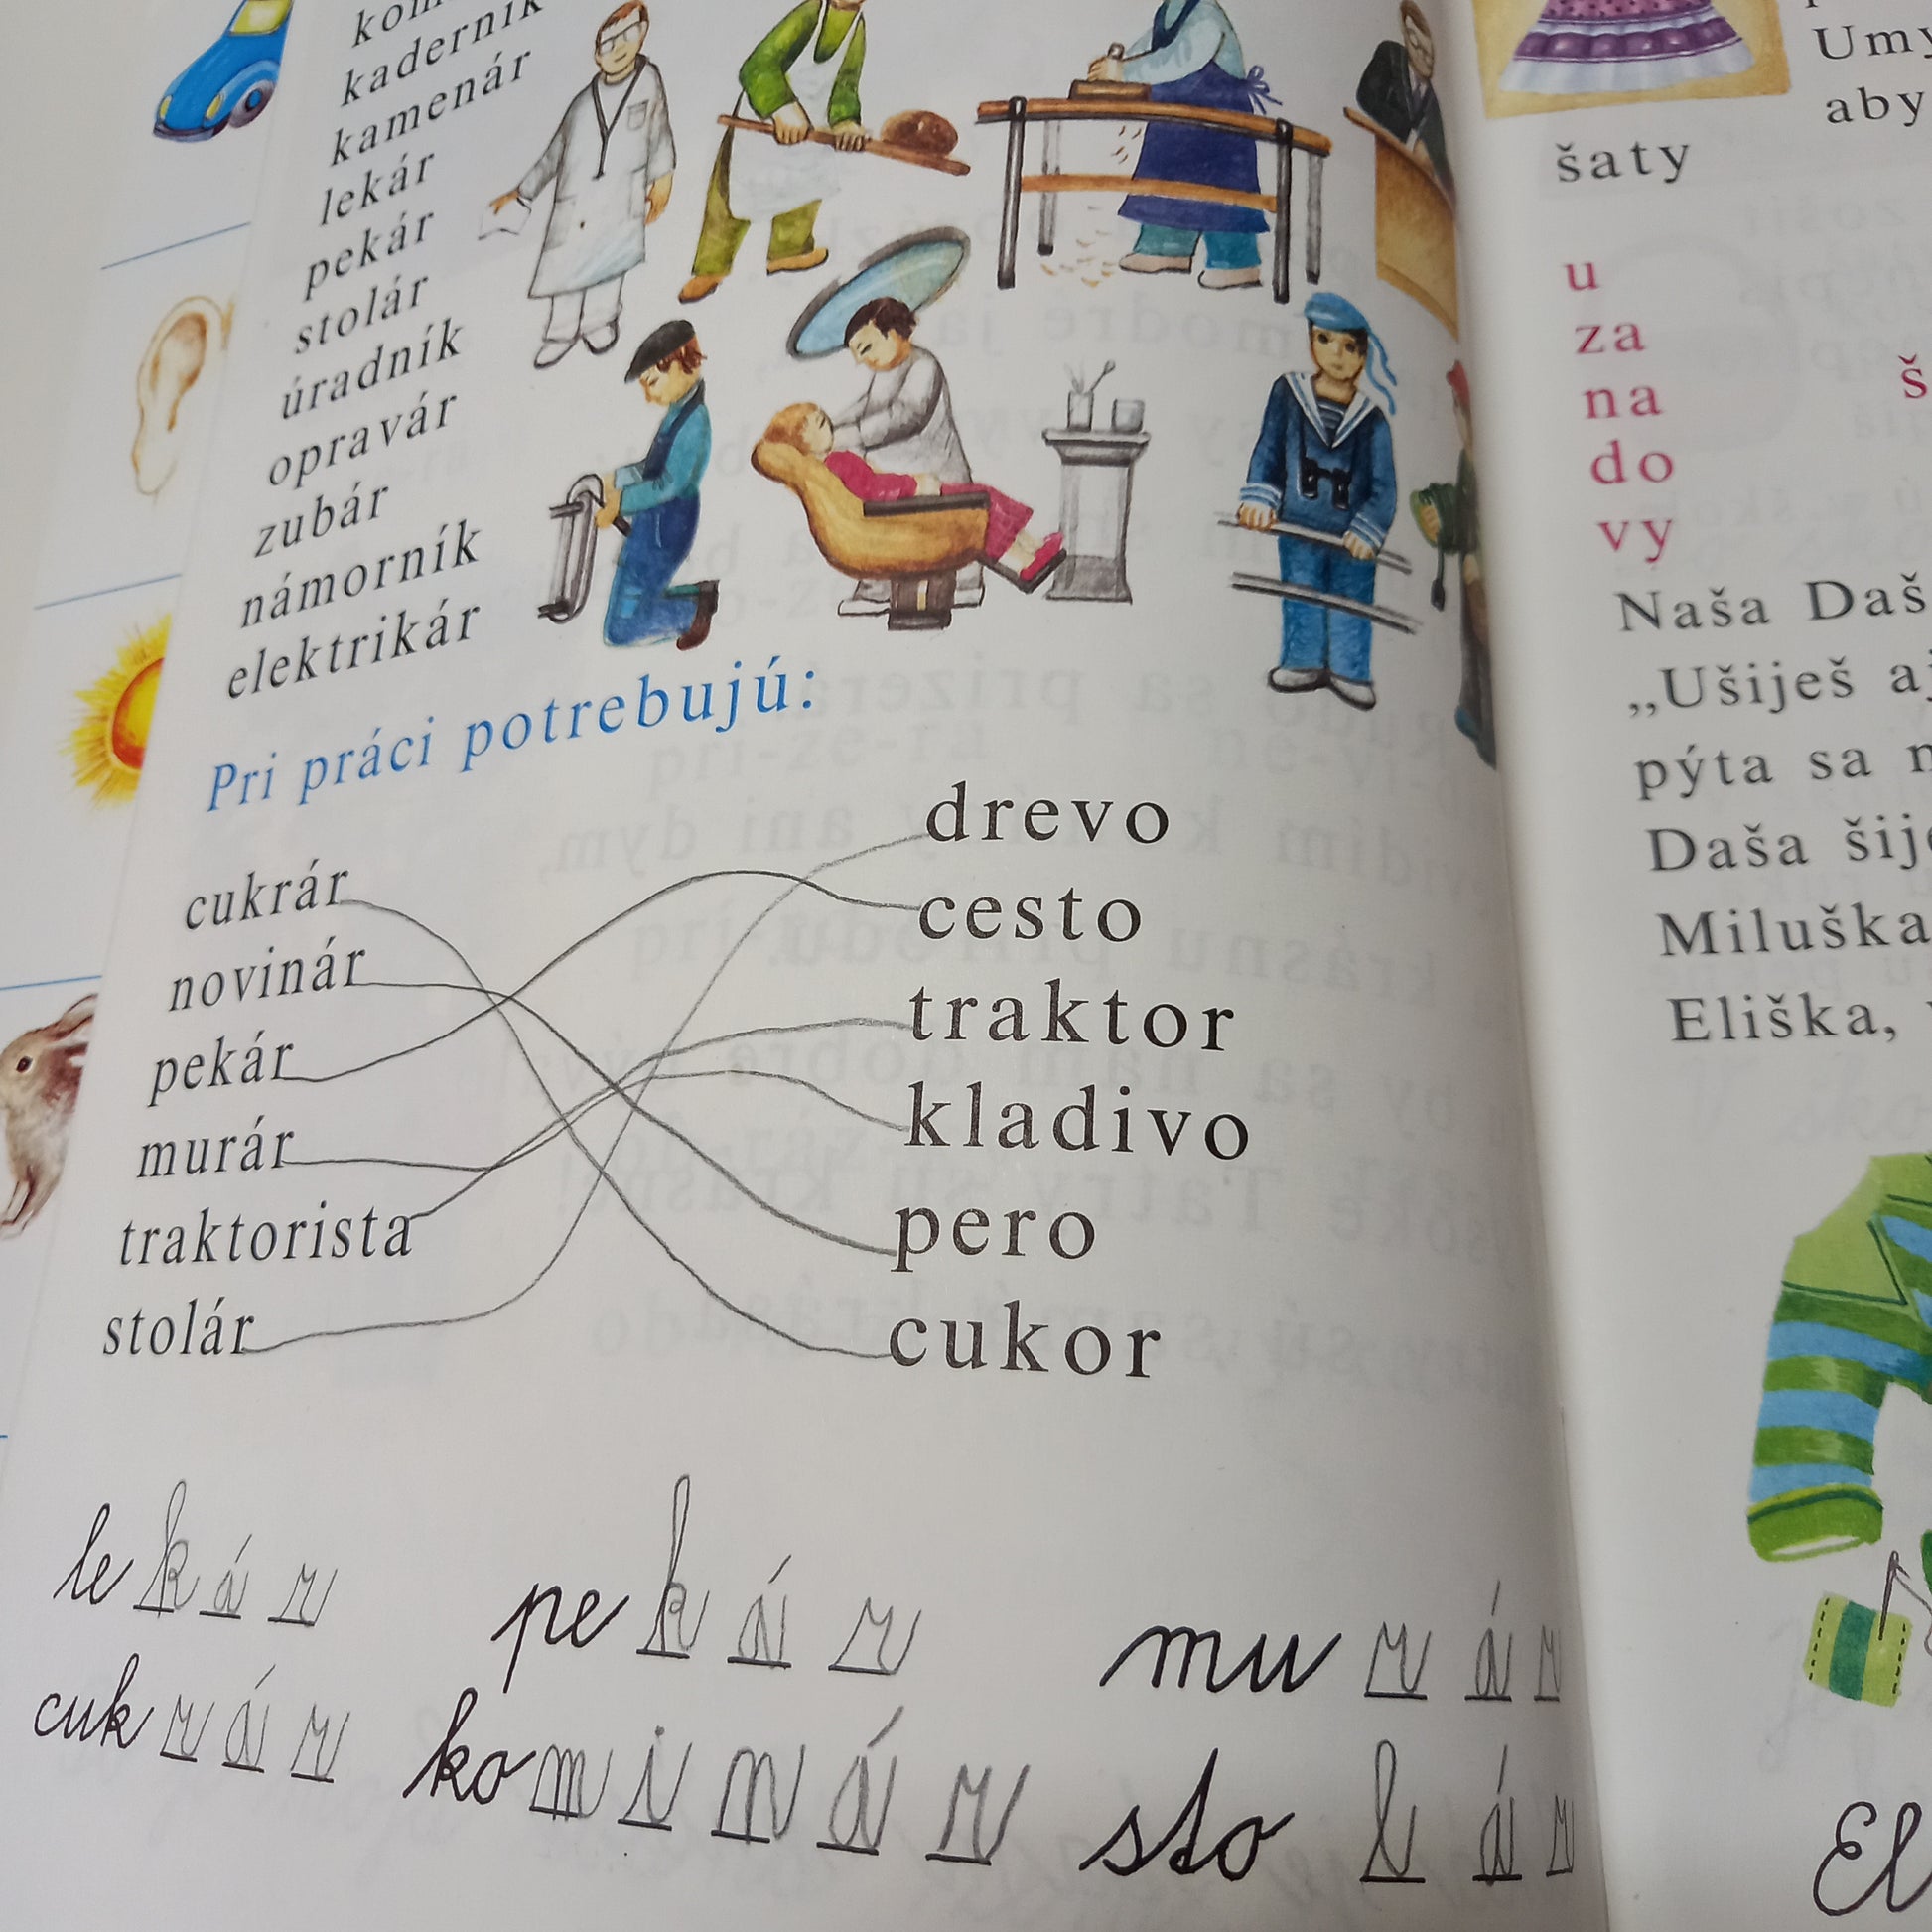 kaderník
kamenár
lekár
pekár
stolár
úradník
opravár
zubár
námorník
elektrikár
Pri práci potrebujú:
cukrár
novinár
pekár
murár
traktorista
stolár
drevo
cesto
traktor
kladivo
pero
cukor
lekár pekár murár
cukrár kominár stolár
aby
šaty
u
za
na
do
vy
š
Naša
„Ušiješ
pýta sa
Daša
Miluška
Eliška,